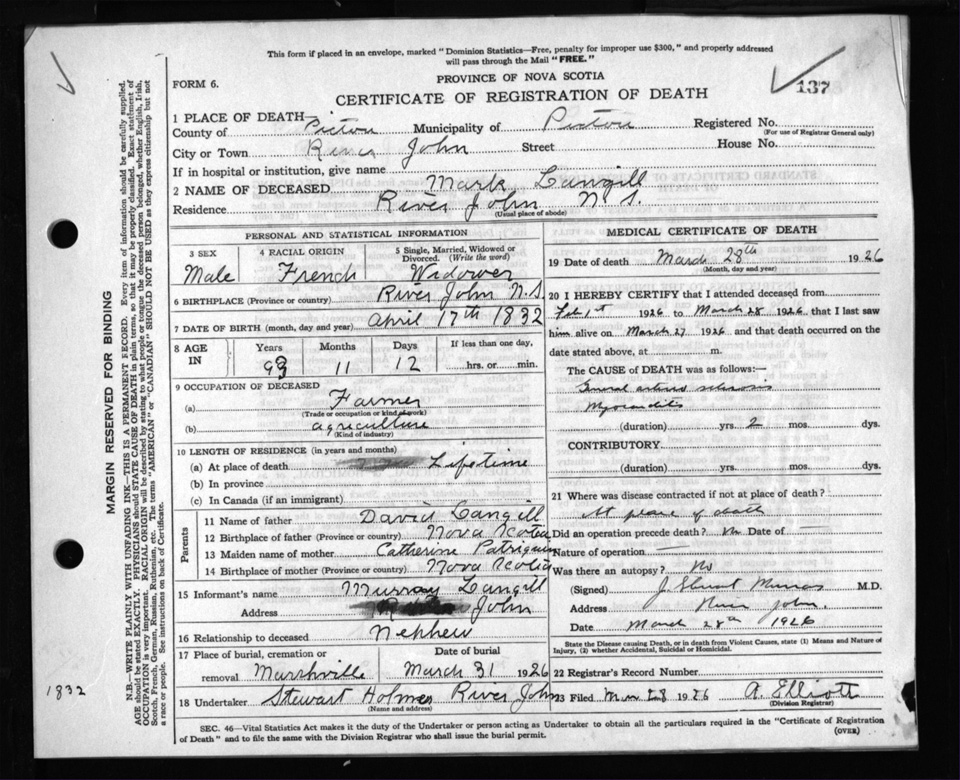 This form if placed in an envelope, marked "Dominion Statistics—Free, penalty for improper use $300," and properly addressed
will pass through the Mail "FREE."
FORM 6.
PROVINCE OF NOVA SCOTIA
137
CERTIFICATE OF REGISTRATION OF DEATH
1 PLACE OF DEATH
County of Pictou Municipality of Pictou Registered No.
(For use of Registrar General only)
City or Town River John Street House No.
If in hospital or institution, give name
2 NAME OF DECEASED Mark Langill
Residence River John N S.
(Usual place of abode)
PERSONAL AND STATISTICAL INFORMATION
3 SEX 4 RACIAL ORIGIN 5 Single, Married, Widowed or
Divorced. (Write the word)
Male French Widower
6 BIRTHPLACE (Province or country) River John N.S
7 DATE OF BIRTH (month, day and year) April 17th 1832
8 AGE IN Years Months Days If less than one day,
93 11 12 hrs. or min.
9 OCCUPATION OF DECEASED
(a) Farmer
(Trade or occupation or kind of work)
(b) agriculture
(Kind of industry)
10 LENGTH OF RESIDENCE (in years and months)
(a) At place of death Lifetime
(b) In province
(c) In Canada (if an immigrant)
Parents
11 Name of father David Langill
12 Birthplace of father (Province or country) Nova Scotia
13 Maiden name of mother Catherine Patriquin
14 Birthplace of mother (Province or country) Nova Scotia
15 Informant's name Murray Langill
Address River John
16 Relationship to deceased Nephew
17 Place of burial, cremation or Date of burial
removal Marshville March 31 1926
18 Undertaker Stewart Holmes River John
(Name and address)
MEDICAL CERTIFICATE OF DEATH
19 Date of death March 28th 1926
(Month, day and year)
20 I HEREBY CERTIFY that I attended deceased from
Feb 1st 1926 to March 28 1926, that I last saw
him alive on March 27 1926 and that death occurred on the
date stated above, at m.
The CAUSE of DEATH was as follows:—
General arterio sclerosis
Myocarditis
(duration) yrs. 2 mos. dys.
CONTRIBUTORY
(duration) yrs. mos. dys.
21 Where was disease contracted if not at place of death?
At place of death
Did an operation precede death? No Date of
Nature of operation
Was there an autopsy? No
(Signed) J. Stuart Munro M.D.
Address River John.
Date March 28th 1926
State the Disease causing Death, or in death from Violent Causes, state (1) Means and Nature of
Injury, (2) whether Accidental, Suicidal or Homicidal.
22 Registrar's Record Number
23 Filed Mar 28 1926 A. Elliott
(Division Registrar)
SEC. 46—Vital Statistics Act makes it the duty of the Undertaker or person acting as Undertaker to obtain all the particulars required in the "Certificate of Registration
of Death" and to file the same with the Division Registrar who shall issue the burial permit.
(OVER)
MARGIN RESERVED FOR BINDING
N.B.—WRITE PLAINLY WITH UNFADING INK—THIS IS A PERMANENT RECORD. Every item of information should be carefully supplied.
AGE should be stated EXACTLY. PHYSICIANS should STATE CAUSE OF DEATH in plain terms, so that it may be properly classified. Exact statement of
OCCUPATION is very important. RACIAL ORIGIN will be described by stating to what people or tongue the deceased person belonged, whether English, Irish,
Scotch, French, German, Russian, Ruthenian, etc. The terms "AMERICAN" or "CANADIAN" SHOULD NOT BE USED as they express citizenship but not
a race or people. See instructions on back of Certificate.
1832